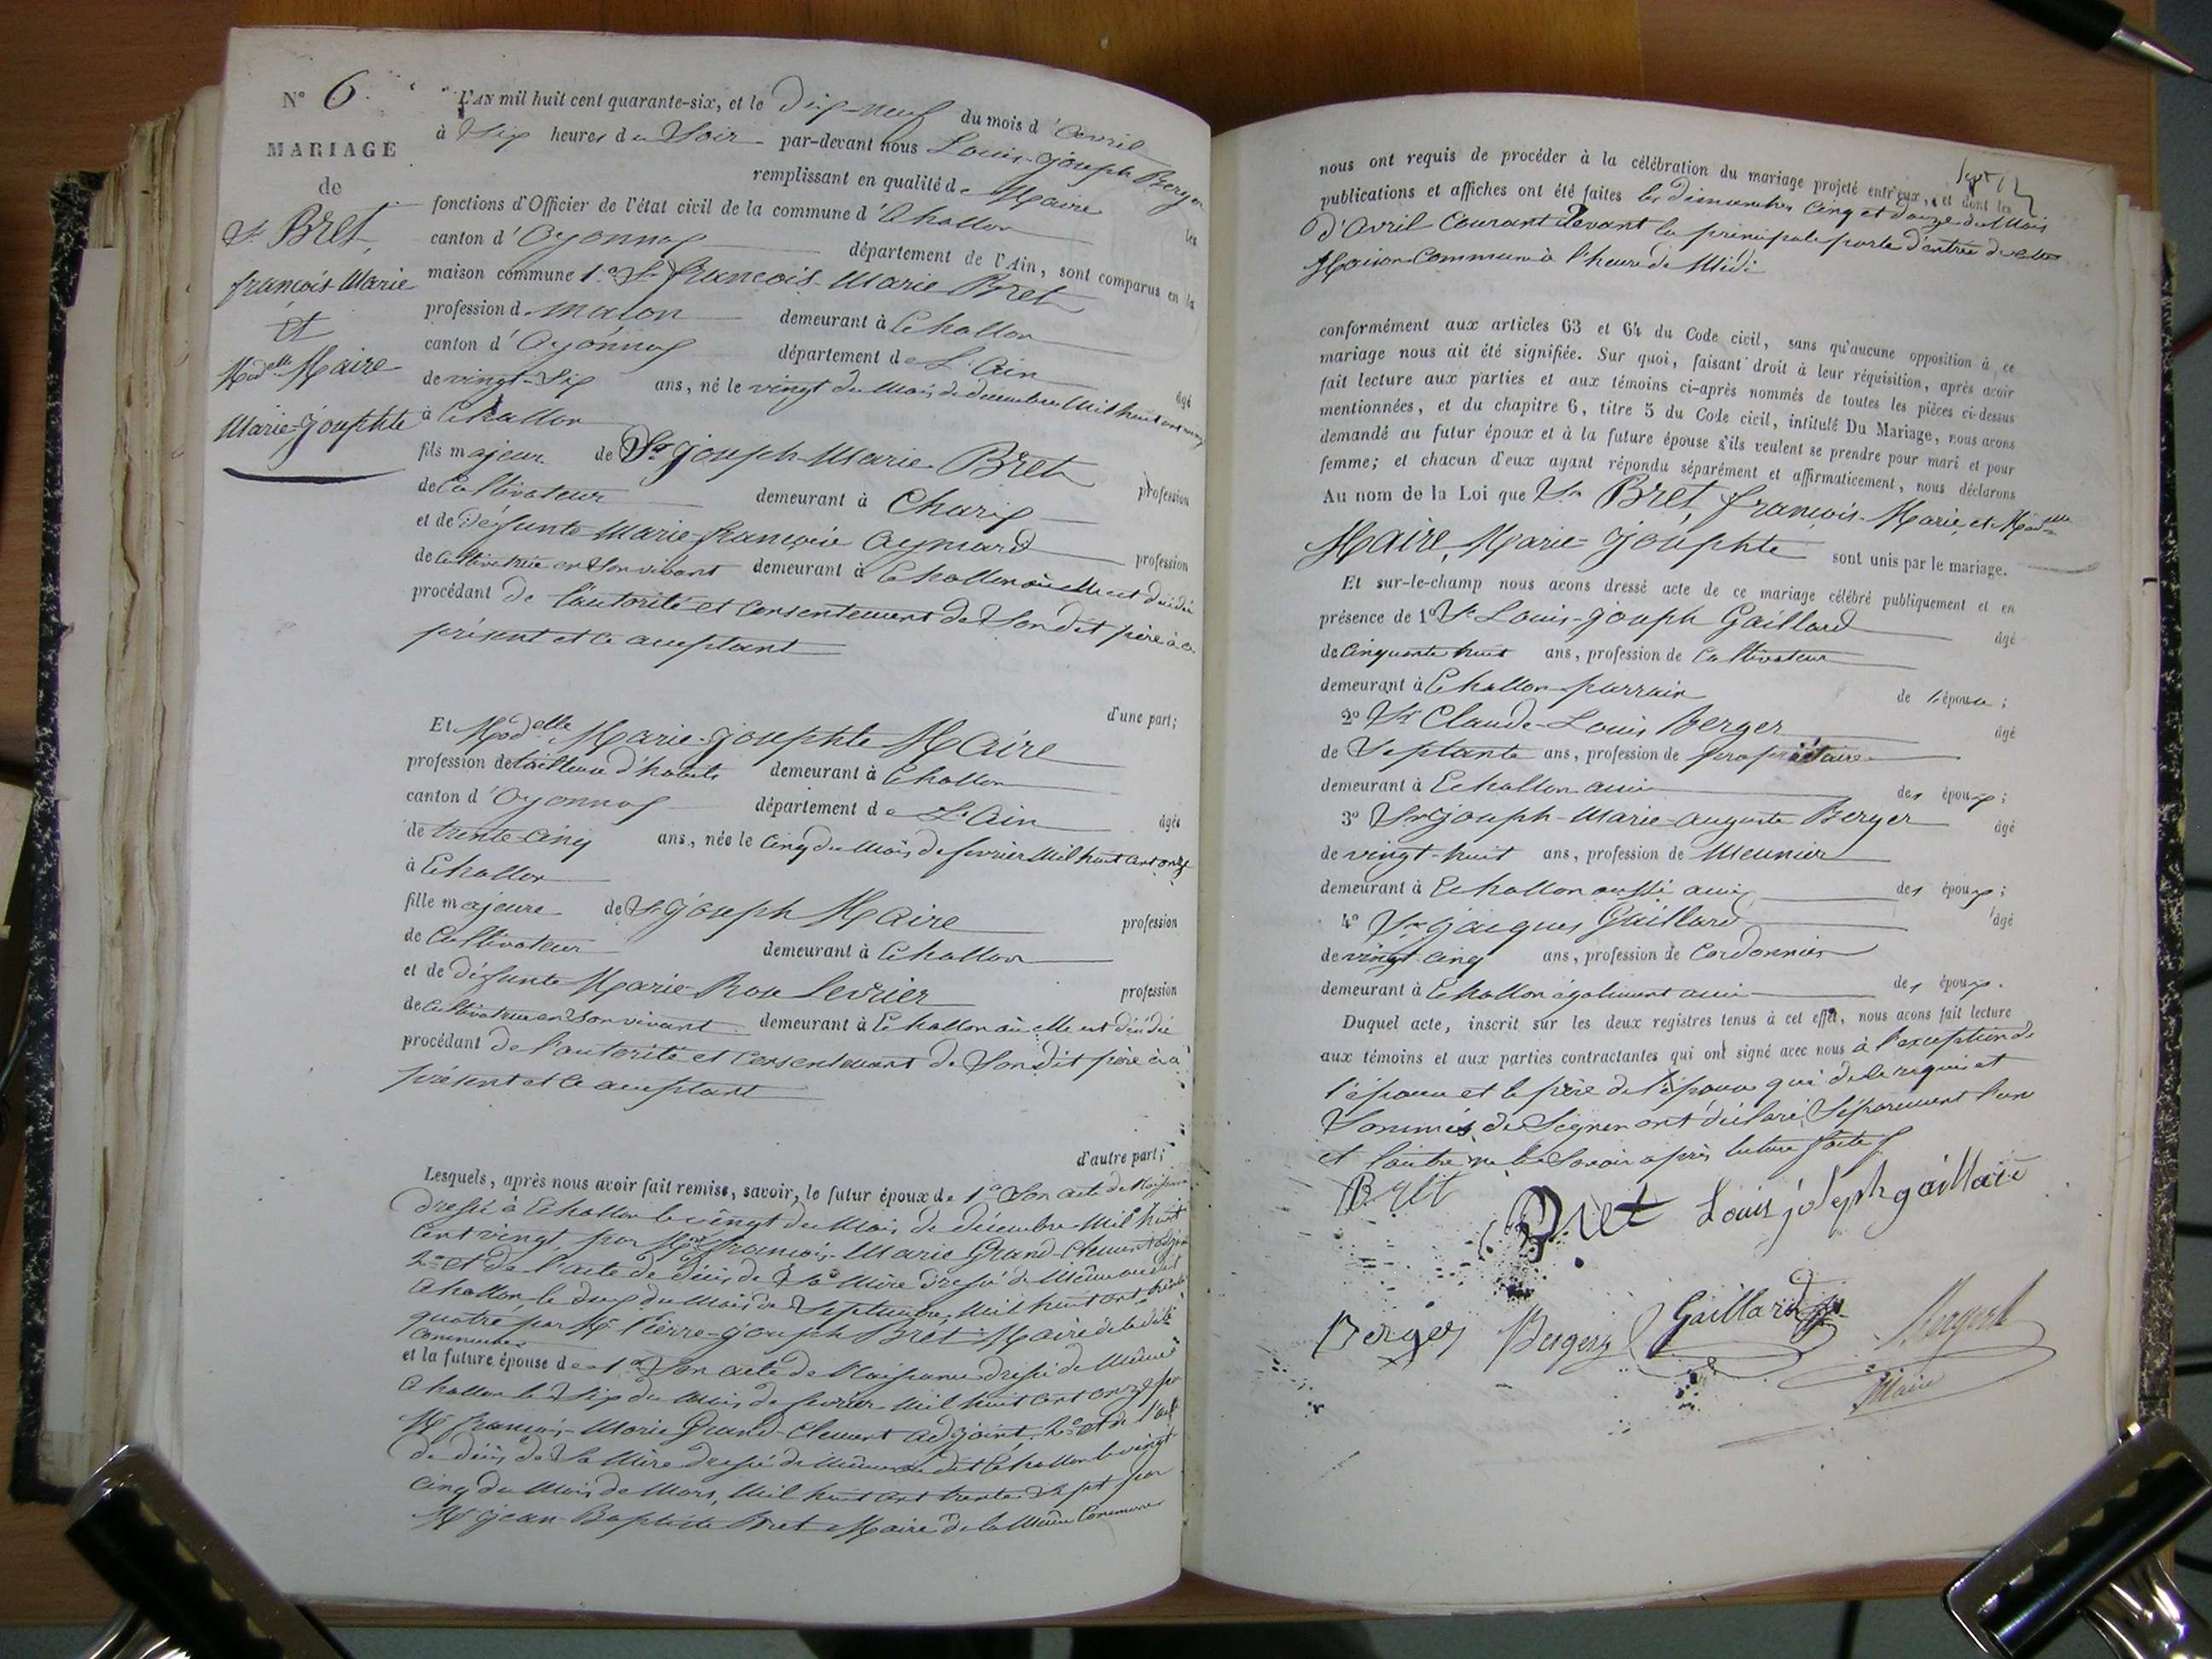 N° 6.
MARIAGE
de
Sr Bret,
françois-Marie
et
Modelle Maire
Marie-josephte
L'AN mil huit cent quarante-six, et le dix-neuf du mois d'avril
à Six heures du Soir par-devant nous Louis-joseph Berger
remplissant en qualité de Maire les
fonctions d'Officier de l'état civil de la commune d'Echallon
canton d'Oyonnax département de l'Ain, sont comparus en la
maison commune 1° Sr françois-Marie Bret
profession de maçon demeurant à Echallon
canton d'Oyonnax département de L'Ain âgé
de vingt-Six ans, né le vingt du Mois de décembre Mil huit cent vingt
à Echallon
fils majeur de Sr joseph-Marie Bret profession
de Cultivateur demeurant à Charix
et de défunte Marie-françoise Aymard profession
de Cultivatrice en Son vivant demeurant à Echallon où elle est décédée
procédant de l'autorité et Consentement de Son dit père à ce
présent et ce acceptant
d'une part;
Et Modelle Marie-josephte Maire
profession de tailleuse d'habits demeurant à Echallon
canton d'Oyonnax département de L'Ain âgée
de trente-cinq ans, née le Cinq du Mois de fevrier Mil huit cent onze
à Echallon
fille majeure de Sr joseph Maire profession
de Cultivateur demeurant à Echallon
et de défunte Marie-Rose Levrier profession
de Cultivatrice en Son vivant demeurant à Echallon où elle est décédée
procédant de l'autorité et Consentement de Son dit père à ce
présent et ce acceptant
d'autre part;
Lesquels, après nous avoir fait remise, savoir, le futur époux de 1° Son acte de Naissance
dressé à Echallon le vingt du Mois de décembre Mil huit
Cent vingt, par Mr françois-Marie Grand-Clement adjoint
2° et de l'acte de décès de Sa Mère dressé de Même au dit
Echallon le deux du Mois de Septembre, Mil huit cent trente
quatre par Mr Pierre-joseph Bret Maire de la dite
Commune
et la future épouse de 1° Son acte de Naissance dressé de Même
Echallon le Six du Mois de fevrier Mil huit cent onze par
Mr françois-Marie Grand-Clement adjoint, 2° et de l'acte
de décès de Sa Mère dressé de Même au dit Echallon le vingt
Cinq du Mois de Mars, Mil huit cent trente Sept par
Mr jean-Baptiste Bret Maire de la Même Commune
Sept
nous ont requis de procéder à la célébration du mariage projeté entr'eux, et dont les
publications et affiches ont été faites les dimanches Cinq et douze du Mois
d'Avril Courant devant la principale porte d'entrée de cette
Maison Commune à l'heure de Midi
conformément aux articles 63 et 64 du Code civil, sans qu'aucune opposition à ce
mariage nous ait été signifiée. Sur quoi, faisant droit à leur réquisition, après avoir
fait lecture aux parties et aux témoins ci-après nommés de toutes les pièces ci-dessus
mentionnées, et du chapitre 6, titre 5 du Code civil, intitulé Du Mariage, nous avons
demandé au futur époux et à la future épouse s'ils veulent se prendre pour mari et pour
femme; et chacun d'eux ayant répondu séparément et affirmativement, nous déclarons
Au nom de la Loi que Sr Bret, françois-Marie, et Modelle
Maire, Marie-josephte sont unis par le mariage.
Et sur-le-champ nous avons dressé acte de ce mariage célébré publiquement et en
présence de 1° Sr Louis-joseph Gaillard âgé
de Cinquante huit ans, profession de Cultivateur
demeurant à Echallon parrain de l'épouse;
2° Sr Claude-Louis Berger âgé
de Septante ans, profession de propriétaire
demeurant à Echallon ami des époux;
3° Sr joseph-Marie-auguste Berger âgé
de vingt-huit ans, profession de Meunier
demeurant à Echallon aussi ami des époux;
4° Sr jacques Gaillard âgé
de vingt-cinq ans, profession de Cordonnier
demeurant à Echallon également ami des époux.
Duquel acte, inscrit sur les deux registres tenus à cet effet, nous avons fait lecture
aux témoins et aux parties contractantes qui ont signé avec nous à l'exception de
l'épouse et le père de l'épouse qui de le requis et
Sommés de Signer ont déclaré Séparement l'un
et l'autre ne le Savoir après lecture faite
Bret
Bret Louis joseph gaillard
Berger Berger Gaillard Berger
Maire